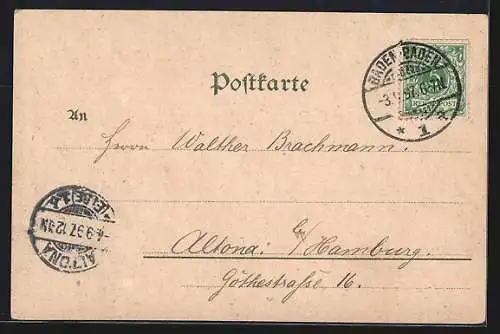 BADEN-BADEN
3.9.97. 6-7N.
* 1 a
Postkarte
An
Herrn Walther Brachmann.
Altona b/Hamburg.
Göthestraße 16.
4.9.97.12-1N
ALTONA